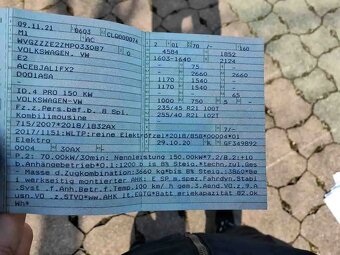 09.11.21 0603 CLQ000074
M1 AC 2 01 70 /- 168
WVGZZZE2ZMP033087 0 4584 1852
VOLKSWAGEN, VW 1603-1640 2124
E2 - M 75 -
ACEBJAL1FX2 - 2660 - 2660
D001ASA 1170 1540 - -
- 1170 1540 - -
ID.4 PRO 150 KW
VOLKSWAGEN-VW 1000 M 750 5 -
Fz.z.Pers.bef.b. 8 Spl 235/50 R20 100T
Kombilimousine 255/45 R20 101T
715/2007*2018/1832AX
2017/1151;WLTP;reine Elektrofzl*2018/858*00004*01
Elektro 29.10.20 K GF349892
0004 M 30AX
P.2: 70.00kW/30min; Nennleistung 150.00KW*7.2/8.2:+10
b.Anhängebetrieb*O.1:1200 b is 8% Steig.*techn.zul.Ges
- Masse d.Zugkombination:3660 kg*bis 8% Steig.:3860*Ba
i werkseitig montierter AHK: E SP m.spez.Fahrdyn.Stabi
.Syst .f.Anh.Betr.f.Temp.100 km/ h gem.3.Aend.VO.z.9.A
usn.VO .z.STVO*ww.AHK lt.EGTG*Batt eriekapazität 82.0k
Wh*